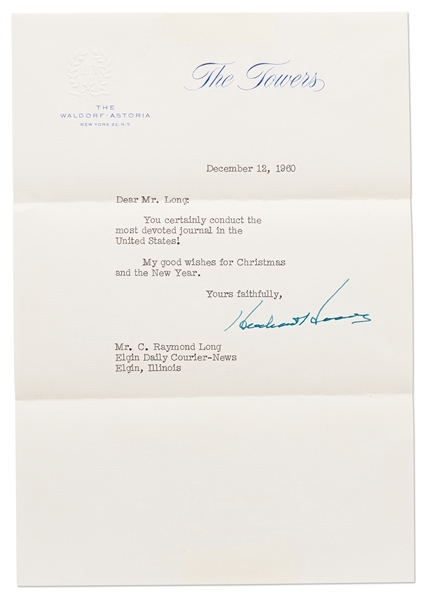 The Towers
THE
WALDORF-ASTORIA
NEW YORK 22, N.Y.
December 12, 1960
Dear Mr. Long:
You certainly conduct the
most devoted journal in the
United States!
My good wishes for Christmas
and the New Year.
Yours faithfully,
Herbert Hoover
Mr. C. Raymond Long
Elgin Daily Courier-News
Elgin, Illinois